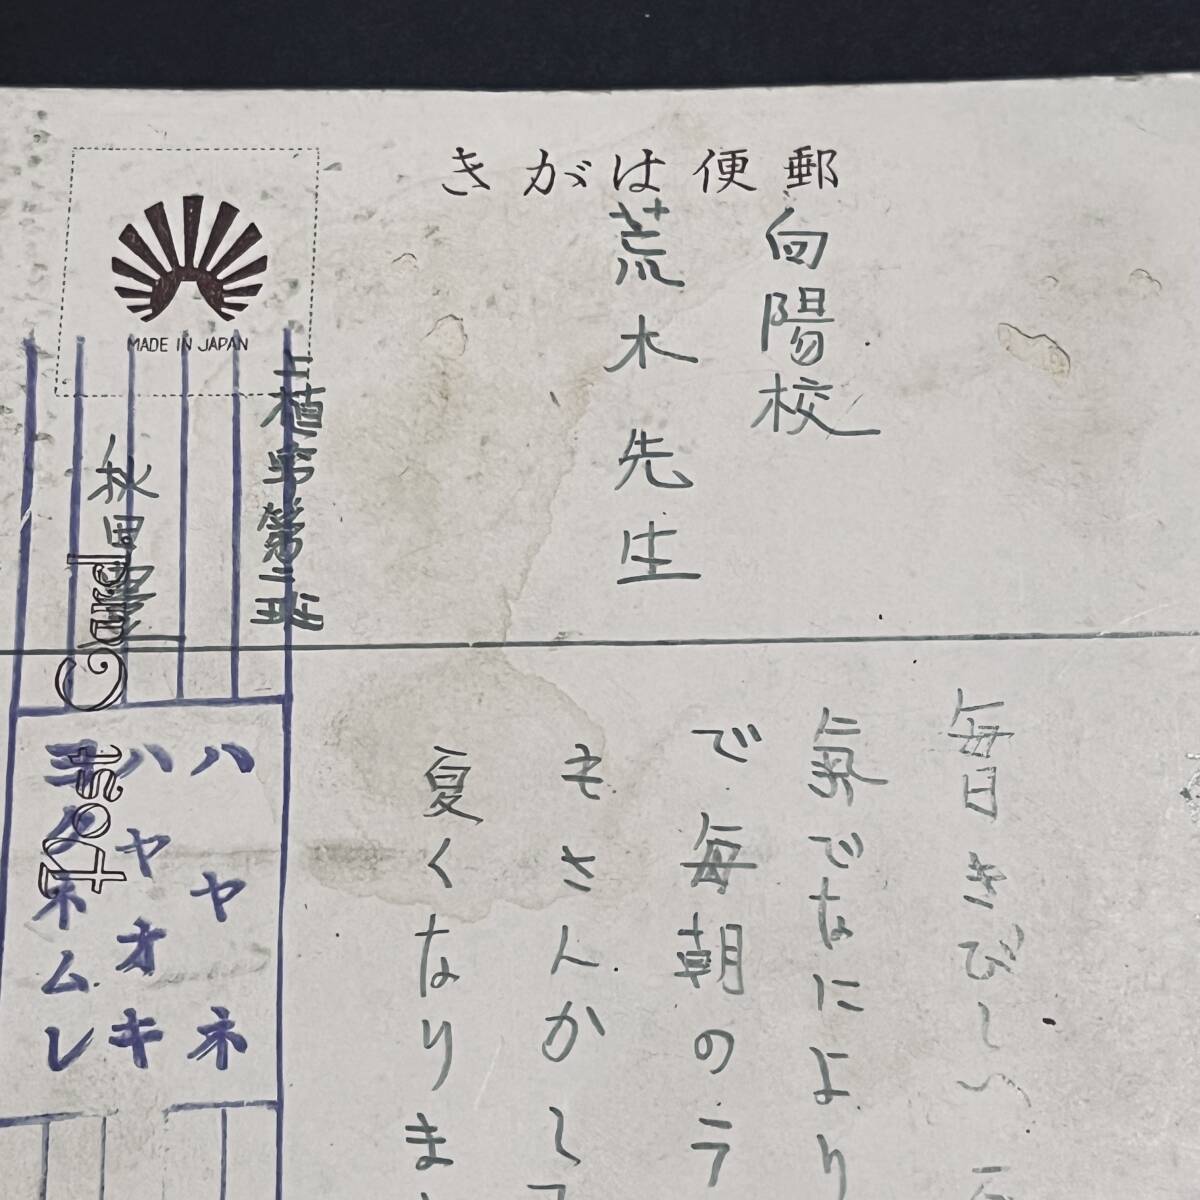 きがは便郵
MADE IN JAPAN
向陽校
荒木先生
上植第二班
秋田
Post Card
毎日きびしい
氣でなにより
で毎朝のラ
もさんかして
夏くなりま
ハヤネ
ハヤオキ
ヨクネムレ